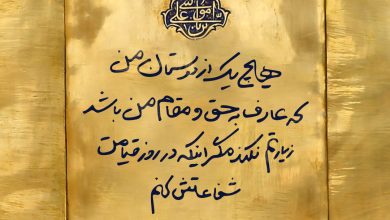 هیچ یک از دوستان من
که عارف به حق و مقام من باشد
زیارتم نکند مگر اینکه در روز قیامت
شفاعتش کنم